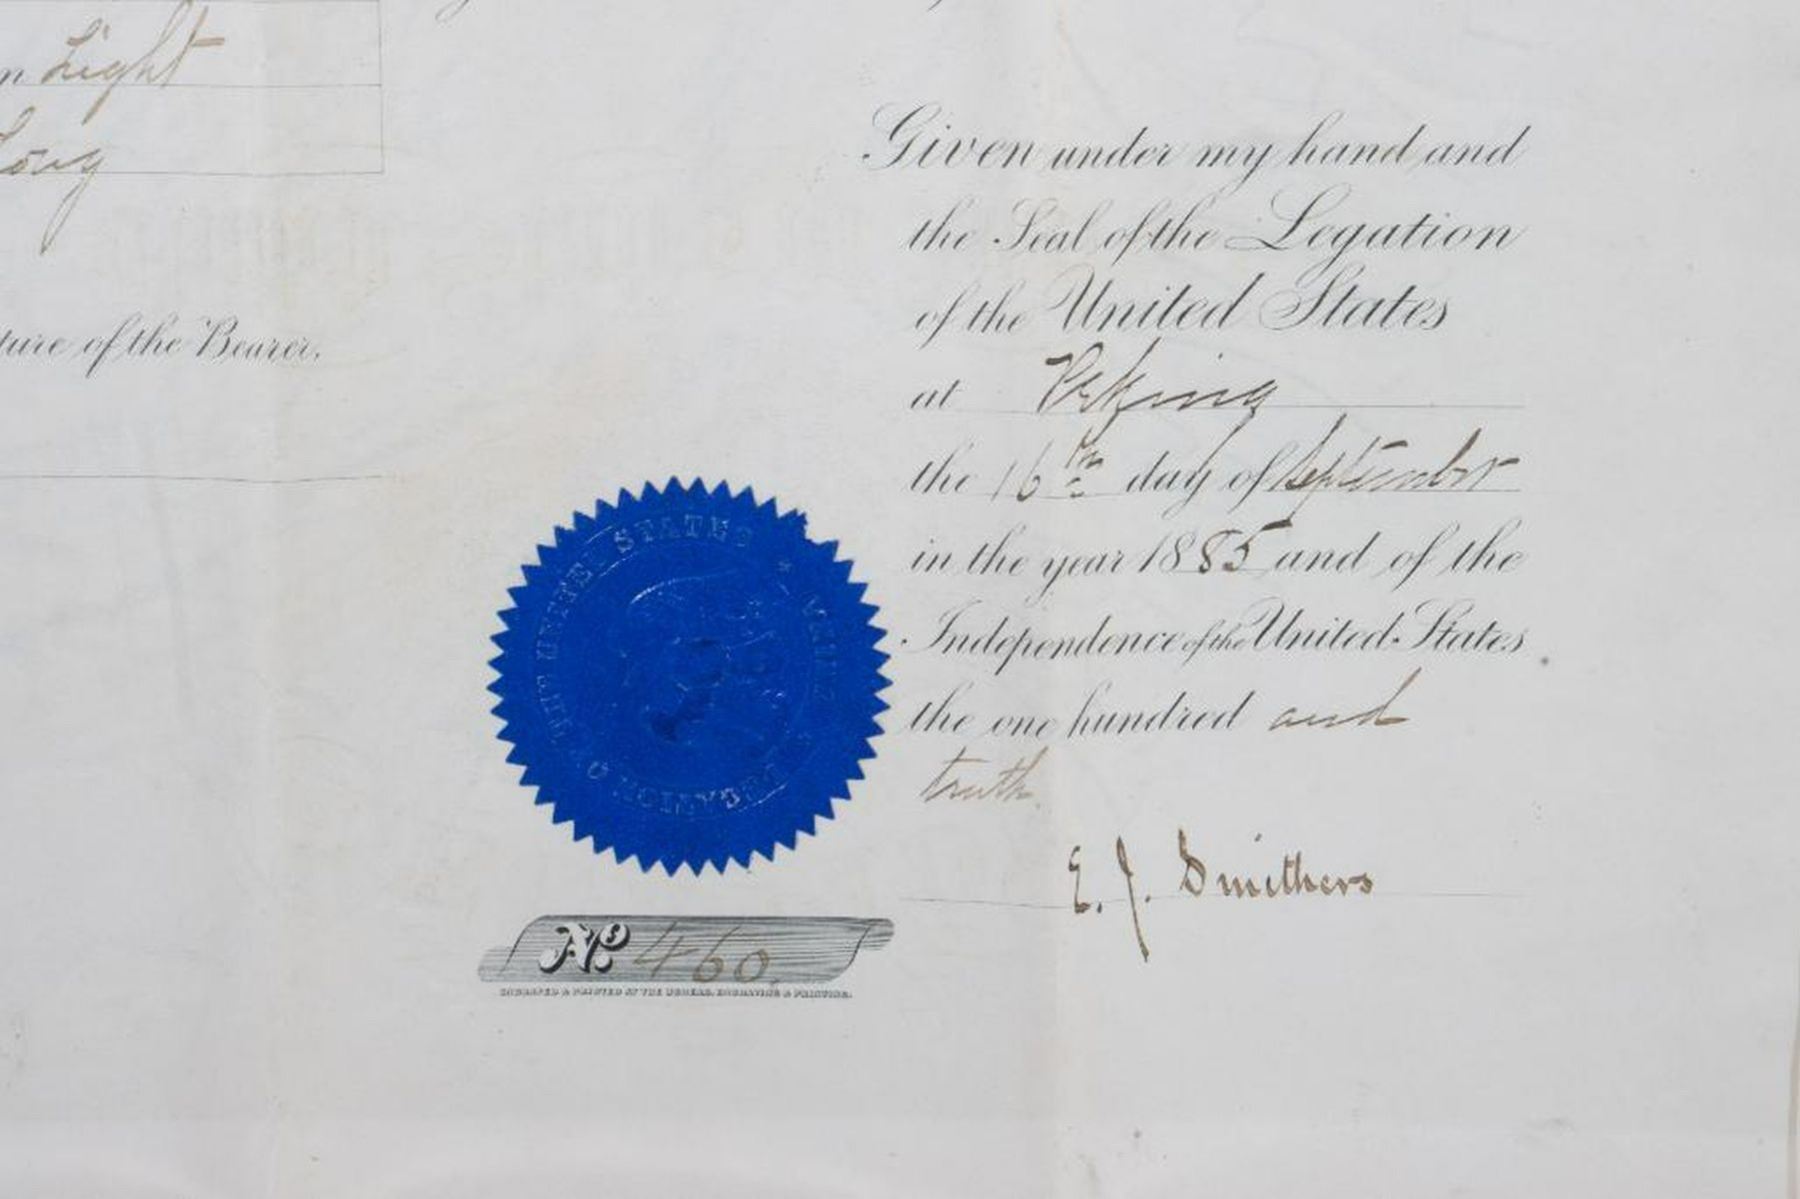 n Light
Long
ture of the Bearer.
Given under my hand and
the Seal of the Legation
of the United States
at Peking
the 16th day of September
in the year 1885 and of the
Independence of the United States
the one hundred and
tenth.
E. J. Smithers
THE UNITED STATES * LEGATION O
No. 460.
ENGRAVED & PRINTED AT THE BUREAU, ENGRAVING & PRINTING.